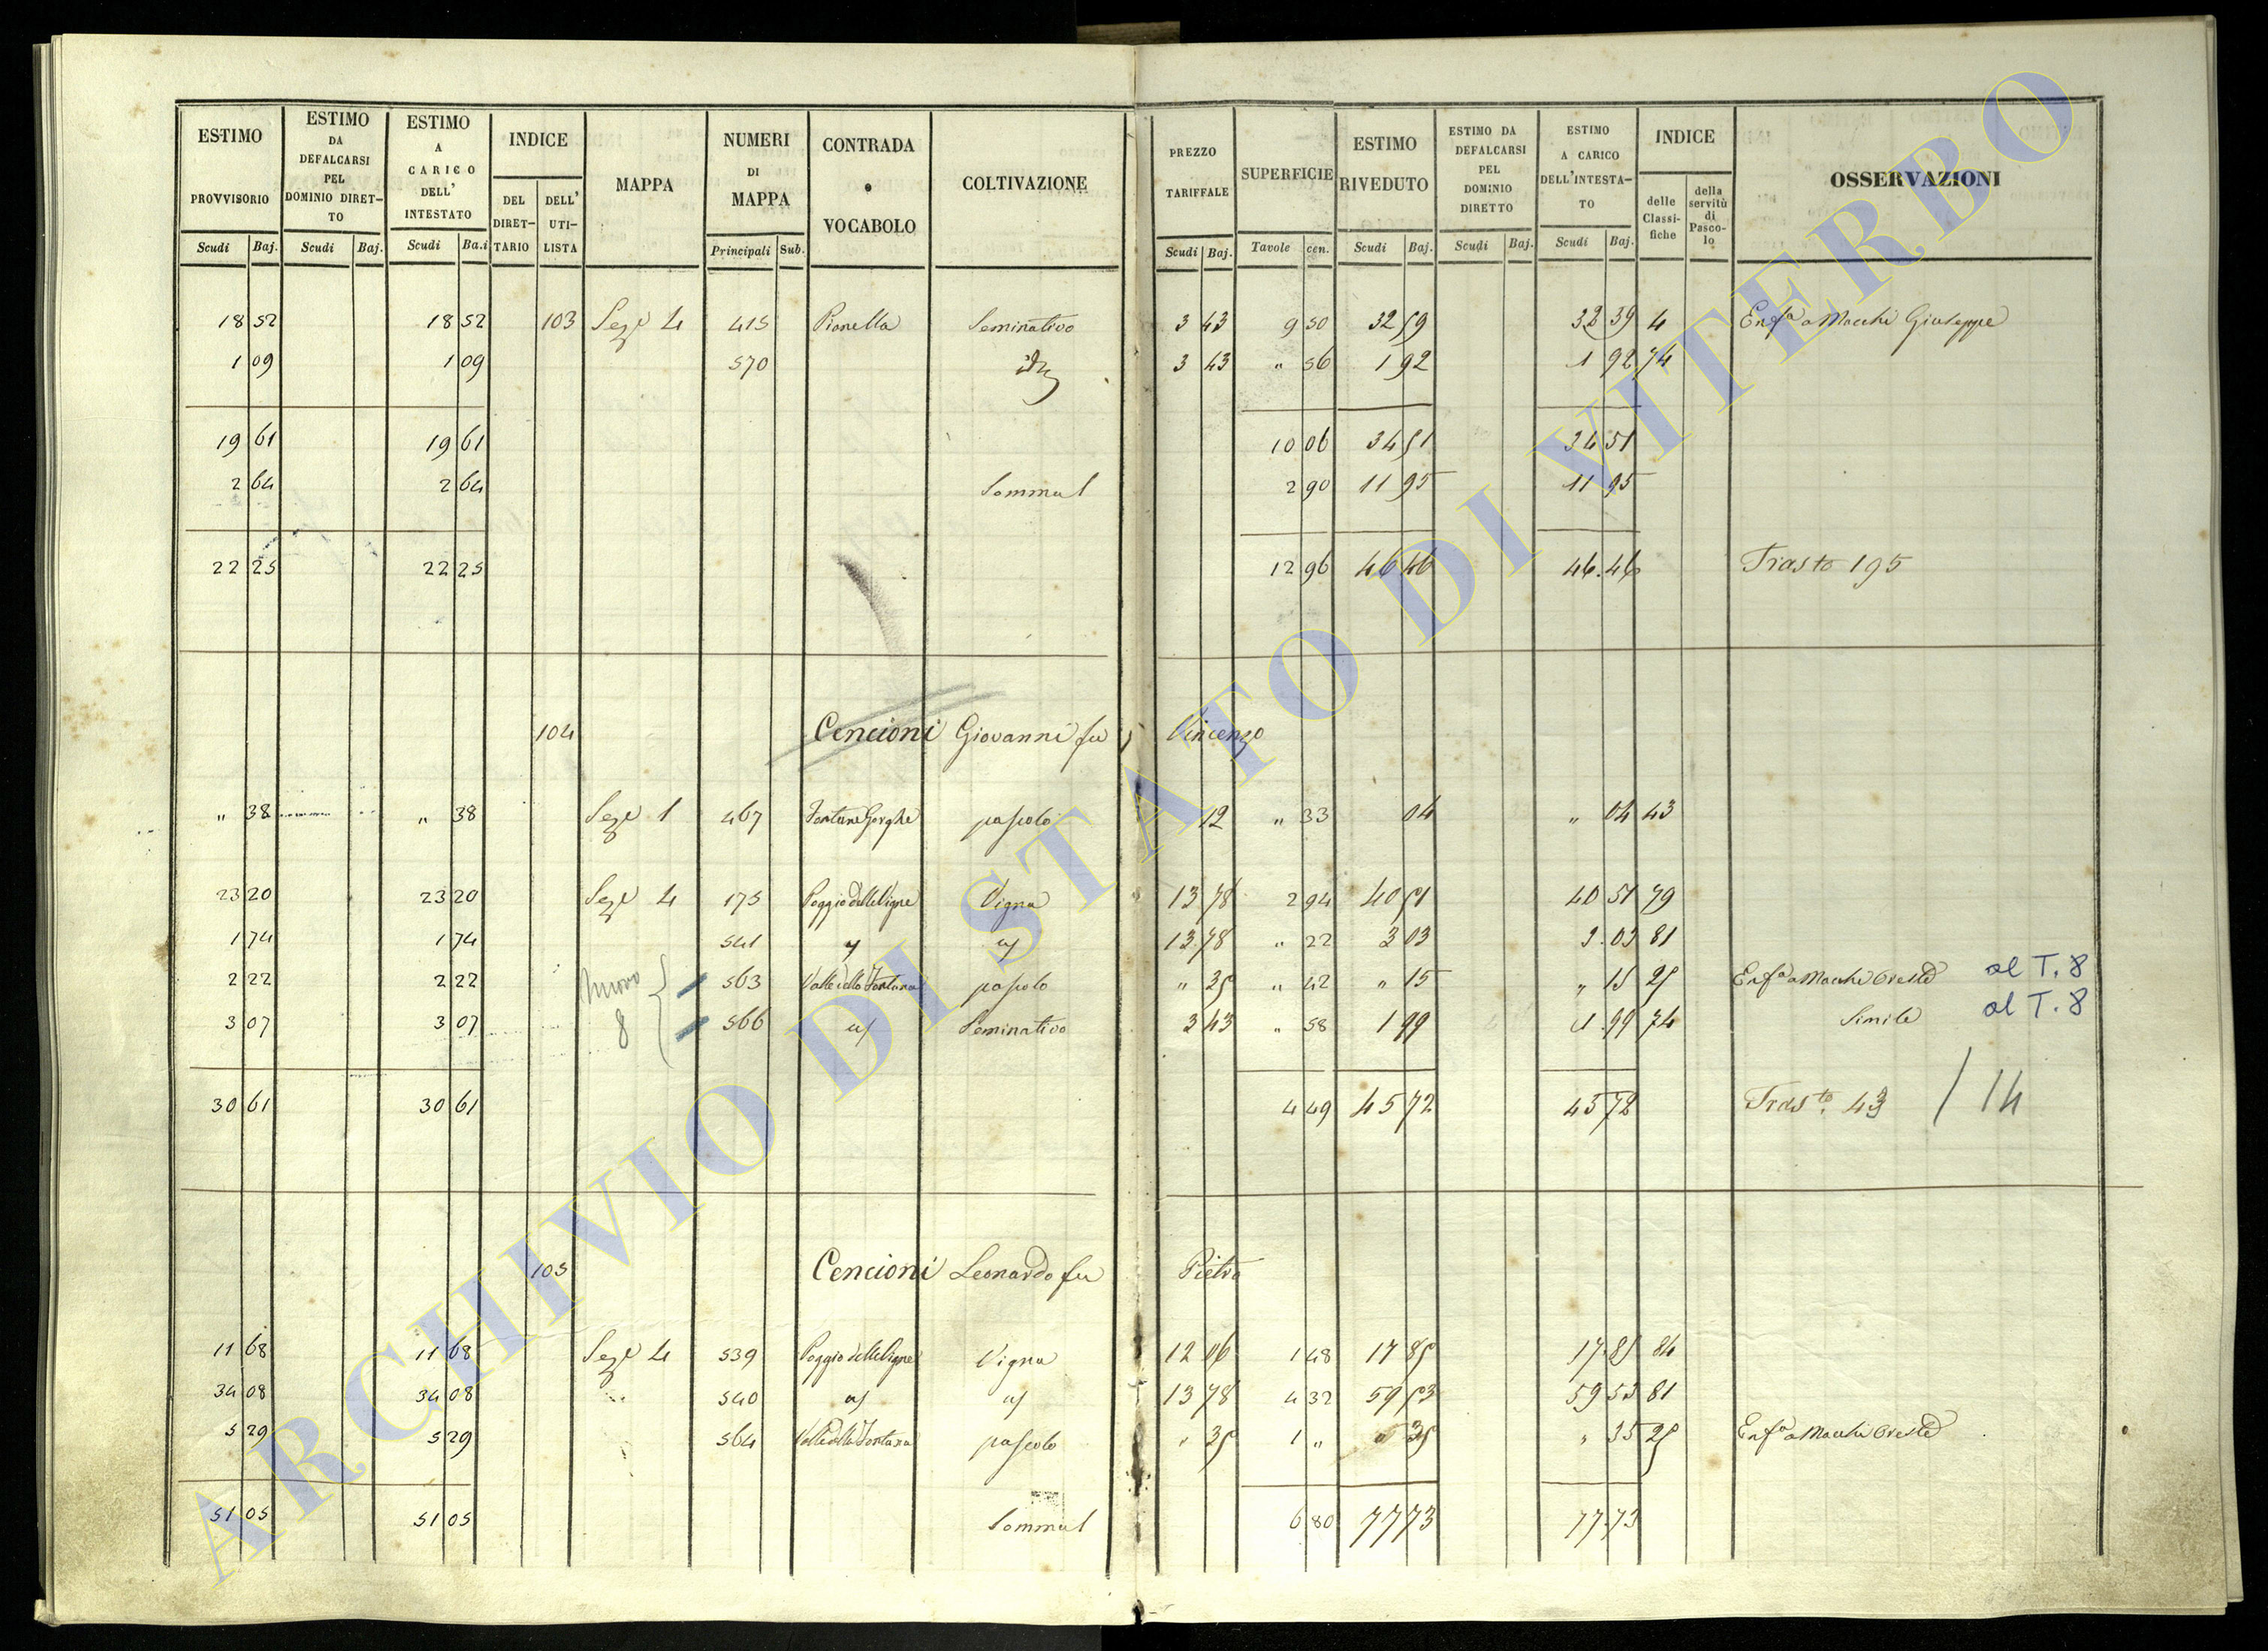 ESTIMO PROVVISORIO Scudi Baj. | ESTIMO DA DEFALCARSI PEL DOMINIO DIRET-TO Scudi Baj. | ESTIMO A CARICO DELL' INTESTATO Scudi Ba.i | INDICE DEL DIRET-TARIO DELL' UTI-LISTA | MAPPA | NUMERI DI MAPPA Principali Sub. | CONTRADA o VOCABOLO | COLTIVAZIONE | PREZZO TARIFFALE Scudi Baj. | SUPERFICIE Tavole cen. | ESTIMO RIVEDUTO Scudi Baj. | ESTIMO DA DEFALCARSI PEL DOMINIO DIRETTO Scudi Baj. | ESTIMO A CARICO DELL'INTESTA-TO Scudi Baj. | INDICE delle Classi-fiche della servitù di Pasco-lo | OSSERVAZIONI
18 52 18 52 103 Sez.e 4 415 Pianella Seminativo 3 43 9 50 32 59 32 39 4 Enf.a a Macchi Giuseppe
1 09 1 09 570 3 43 " 56 1 92 1 92 74
19 61 19 61 10 06 34 51 34 51
2 64 2 64 2 90 11 95 11 95
22 25 22 25 12 96 46 46 46.46 Tras.to 195
104 Cencioni Giovanni fu Vincenzo
" 38 " 38 Sez.e 1 467 pascolo 12 " 33 04 " 04 43
23 20 23 20 Sez.e 4 175 Poggio delle Vigne Vigna 13 78 2 94 40 51 40 51 79
1 74 1 74 541 13 78 " 22 3 03 3.03 81
2 22 2 22 Nuovo 563 Valle della Fontana pascolo " 35 " 42 " 15 " 15 25 Enf.a a Macchi Oreste al T. 8
3 07 3 07 8 566 Seminativo 3 43 " 58 1 99 1.99 74 Simile al T. 8
30 61 30 61 4 49 45 72 45 72 Tras.to 43 / 14
105 Cencioni Leonardo fu Pietro
11 68 11 68 Sez.e 4 539 Poggio delle Vigne Vigna 12 06 1 48 17 85 17.85 84
34 08 34 08 540 13 78 4 32 59 53 59 53 81
5 29 5 29 564 Valle della Fontana pascolo " 35 1 " " 35 " 35 25 Enf.a a Macchi Oreste
51 05 51 05 6 80 77 73 77.73
ARCHIVIO DI STATO DI VITERBO